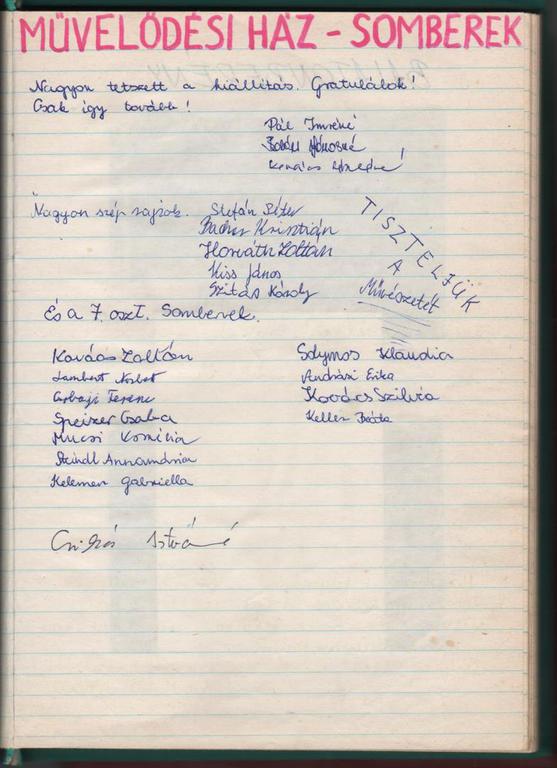 MŰVELŐDÉSI HÁZ - SOMBEREK
Nagyon tetszett a kiállítás. Gratulálok!
Csak így tovább!
Pál Imréné
Jánosné
Kovács
Nagyon szép rajzok. Stefán Péter
Krisztián
Horváth Zoltán
Kiss János
Szitás Károly
TISZTELJÜK
A
Művészetét
És a 7. oszt. Somberek.
Kovács Zoltán
Lambert Norbert
Ferenc
Speizer Csaba
Mucsi Kornélia
Steindl Annamária
Kelemen Gabriella
Solymos Klaudia
Andrási Erika
Kovács Szilvia
Keller Beáta
István